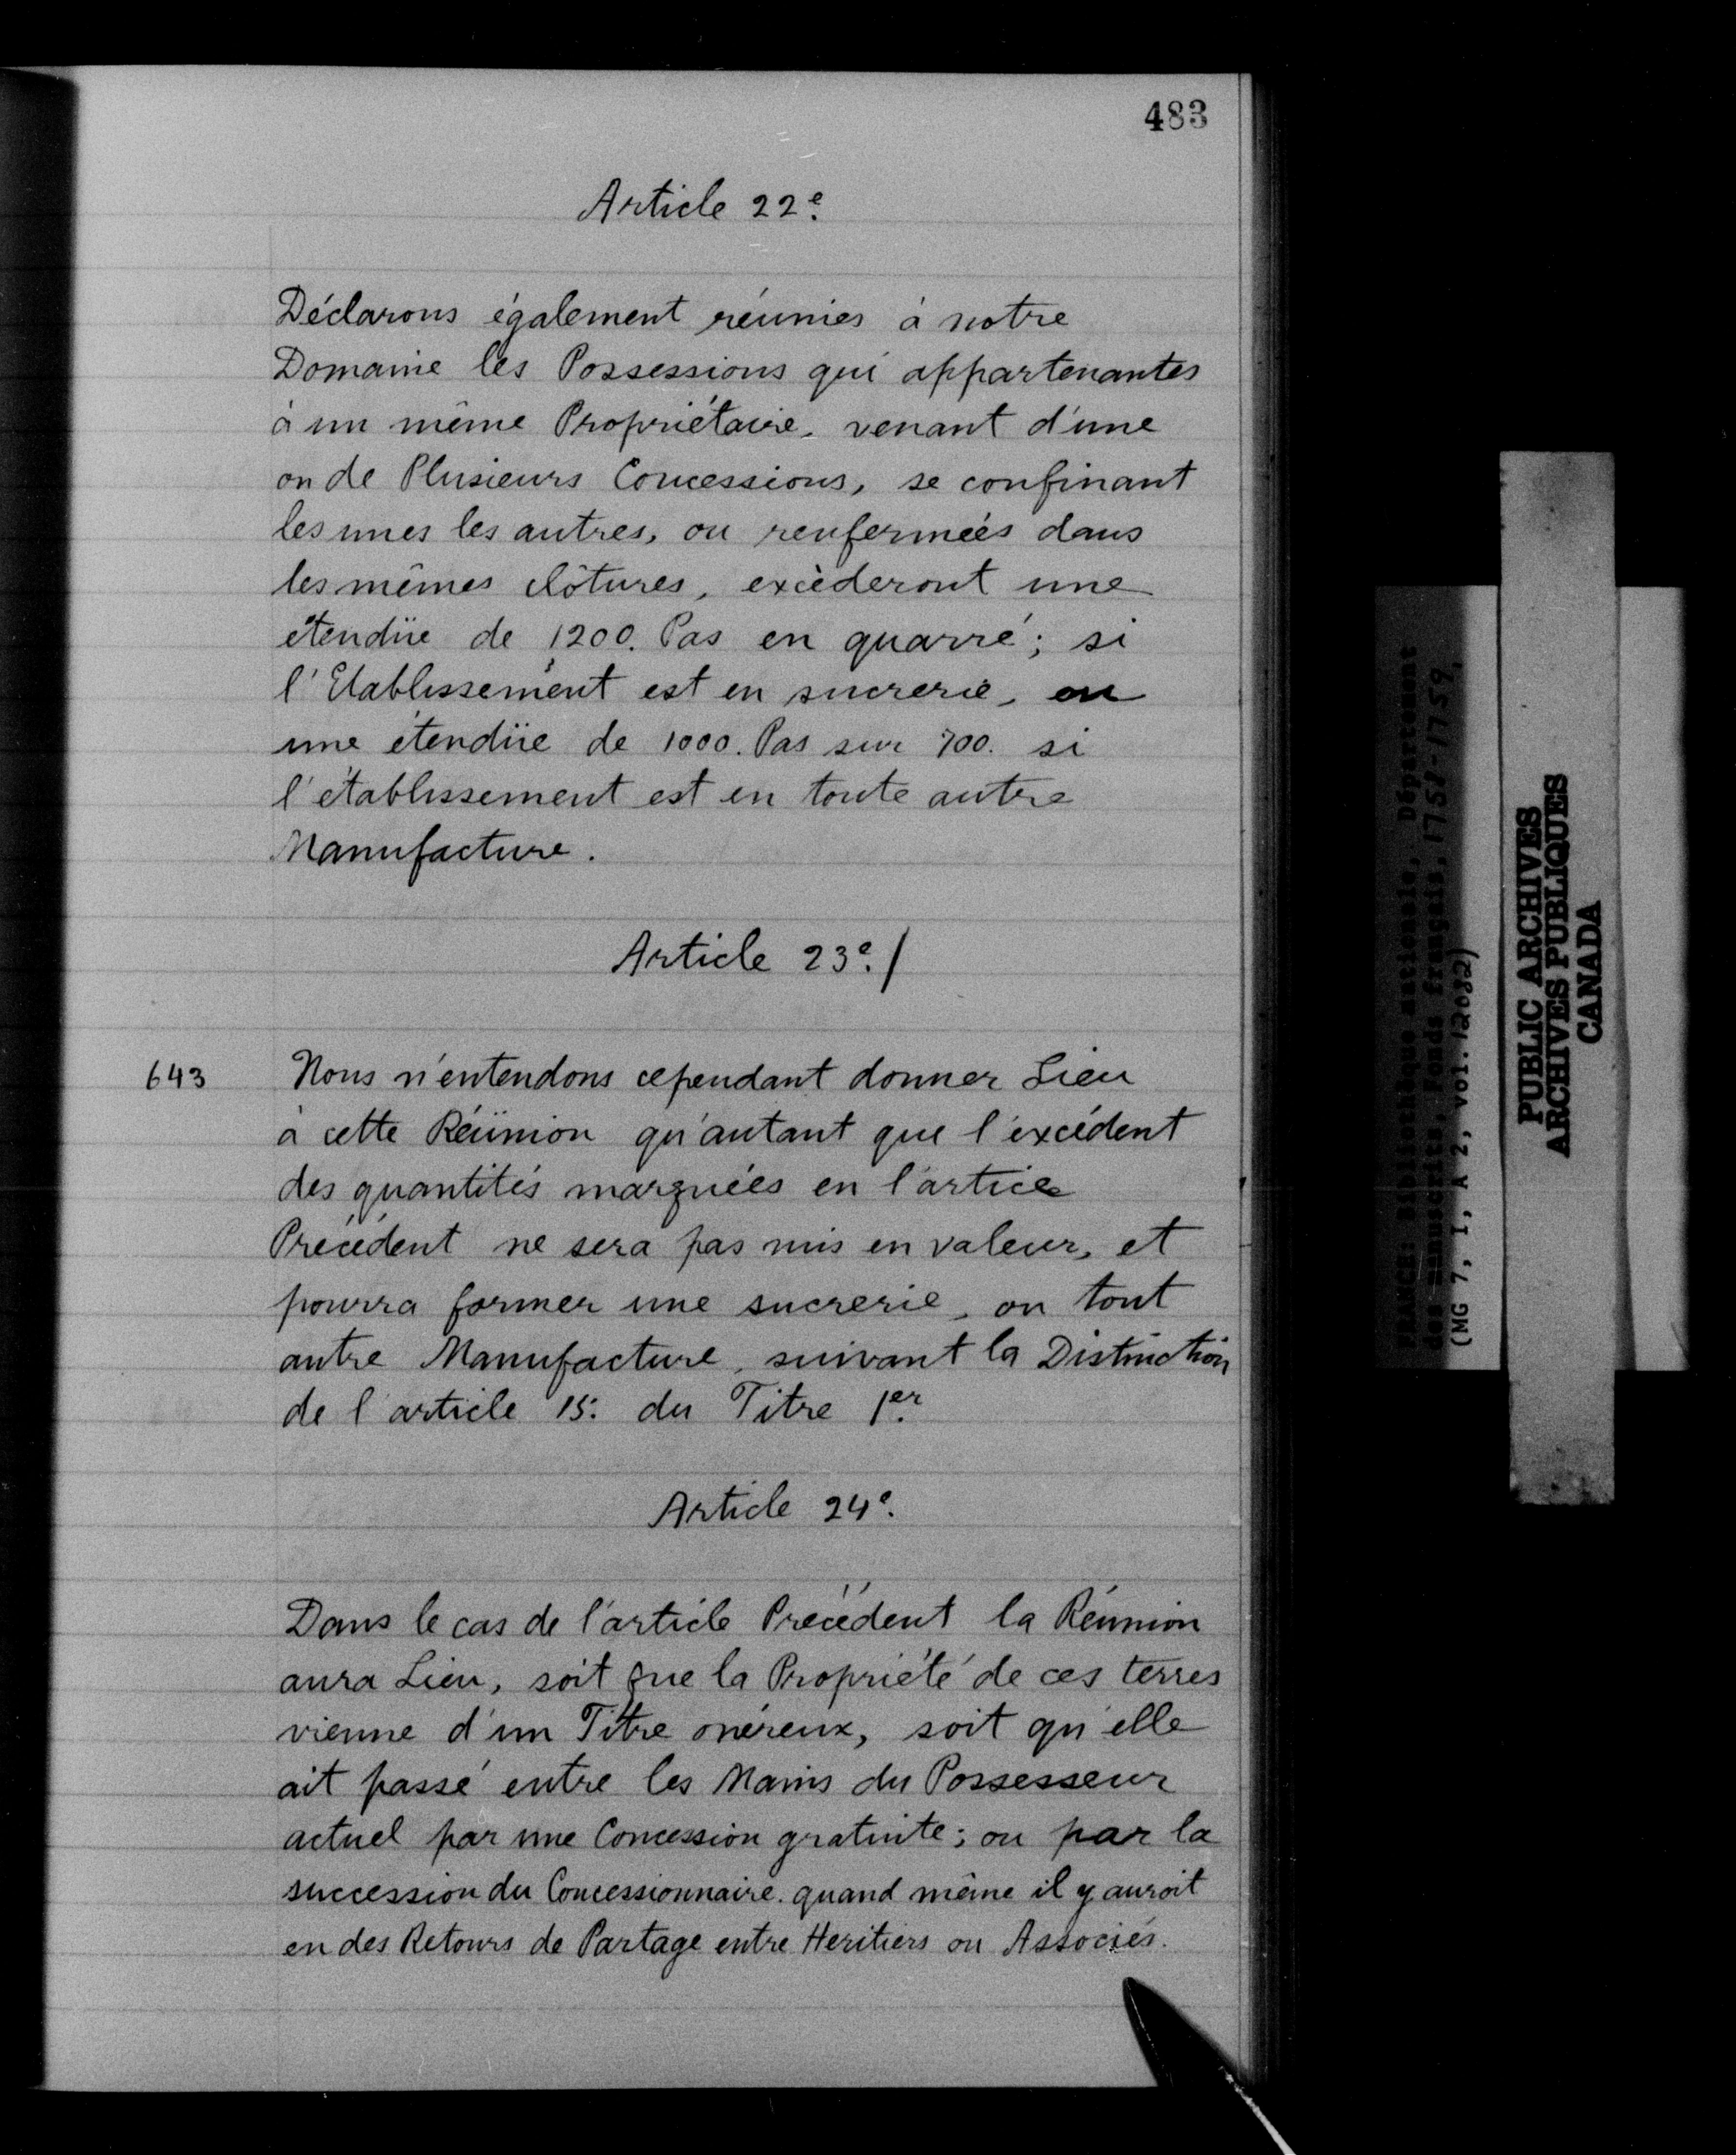 483
Article 22e.
Déclarons également réunies à notre
Domaine les Possessions qui appartenantes
à un même Propriétaire, venant d'une
ou de Plusieurs Concessions, se confinant
les unes les autres, ou renfermées dans
les mêmes clôtures, excèderont une
étendüe de 1200. Pas en quarré; si
l'Etablissement est en sucrerie, ou
une étendüe de 1000. Pas sur 700. si
l'établissement est en toute autre
Manufacture.
Article 23e./
643 Nous n'entendons cependant donner Lieu
à cette Réünion qu'autant que l'excédent
des quantités marquées en l'article
Précédent ne sera pas mis en valeur, et
pourra former une sucrerie, ou tout
autre Manufacture, suivant la Distinction
de l'article 15: du Titre 1er.
Article 24e.
Dans le cas de l'article Précédent la Réunion
aura Lieu, soit que la Propriété de ces terres
vienne d'un Titre onéreux, soit qu'elle
ait passé entre les Mains du Possesseur
actuel par une Concession gratuite; ou par la
succession du Concessionnaire. quand même il y auroit
eu des Retours de Partage entre Heritiers ou Associés.
FRANCE: Bibliothèque nationale, Département
des manuscrits, Fonds français, 1758-1759,
(MG 7, I, A 2, vol. 12082)
PUBLIC ARCHIVES
ARCHIVES PUBLIQUES
CANADA